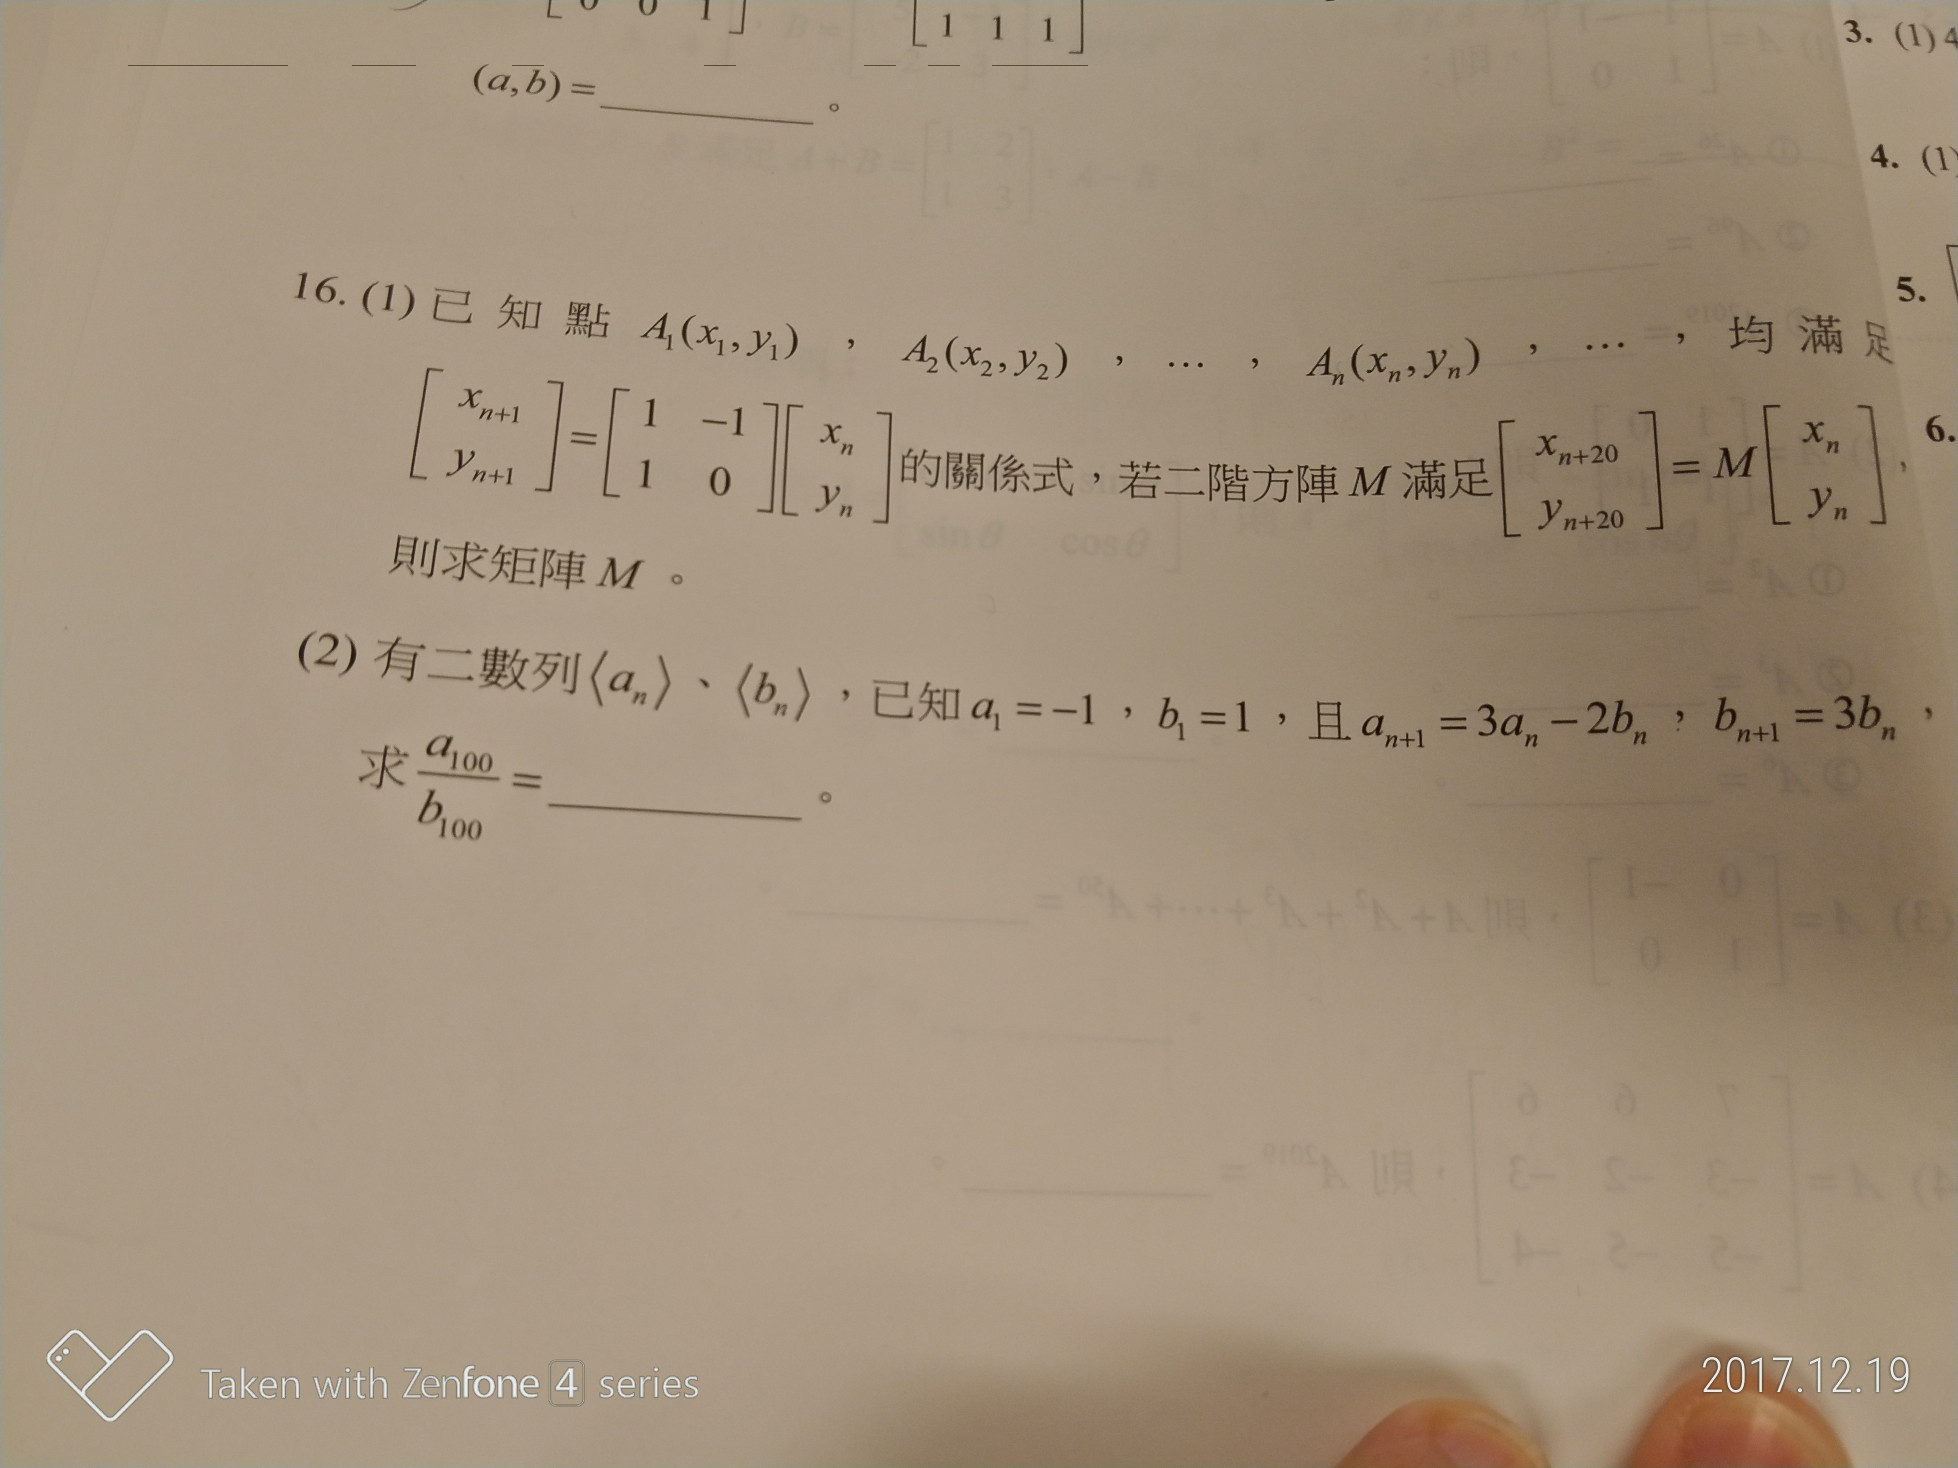 0 0 1
1 1 1
(a,b)=________。
3. (1) 4
4. (1)
5.
6.
16. (1) 已知點 A₁(x₁,y₁),A₂(x₂,y₂),…,Aₙ(xₙ,yₙ),…,均滿足
[xₙ₊₁ ; yₙ₊₁] = [1 −1 ; 1 0][xₙ ; yₙ] 的關係式,若二階方陣 M 滿足 [xₙ₊₂₀ ; yₙ₊₂₀] = M[xₙ ; yₙ],
則求矩陣 M 。
(2) 有二數列⟨aₙ⟩、⟨bₙ⟩,已知 a₁ = −1,b₁ = 1,且 aₙ₊₁ = 3aₙ − 2bₙ,bₙ₊₁ = 3bₙ,
求 a₁₀₀/b₁₀₀ = ________。
Taken with Zenfone 4 series
2017.12.19